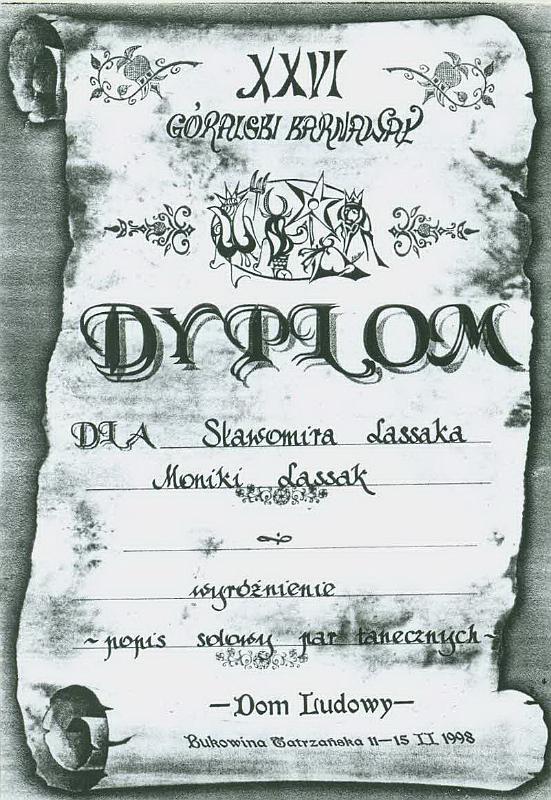 XXVI
GÓRALSKI KARNAWAŁ
DYPLOM
DLA Sławomira Lassaka
Moniki Lassak
wyróżnienie
~popis solowy par tanecznych~
—Dom Ludowy—
Bukowina Tatrzańska 11–15 II 1998